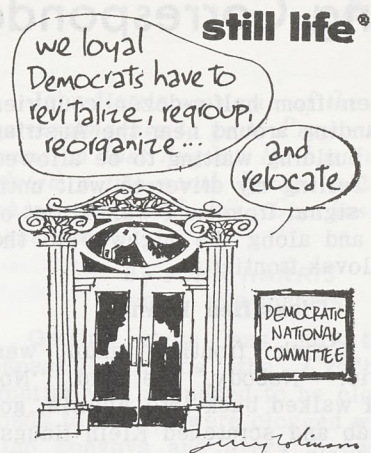 still life®
we loyal
Democrats have to
revitalize, regroup,
reorganize...
and
relocate
DEMOCRATIC
NATIONAL
COMMITTEE
Jerry Robinson